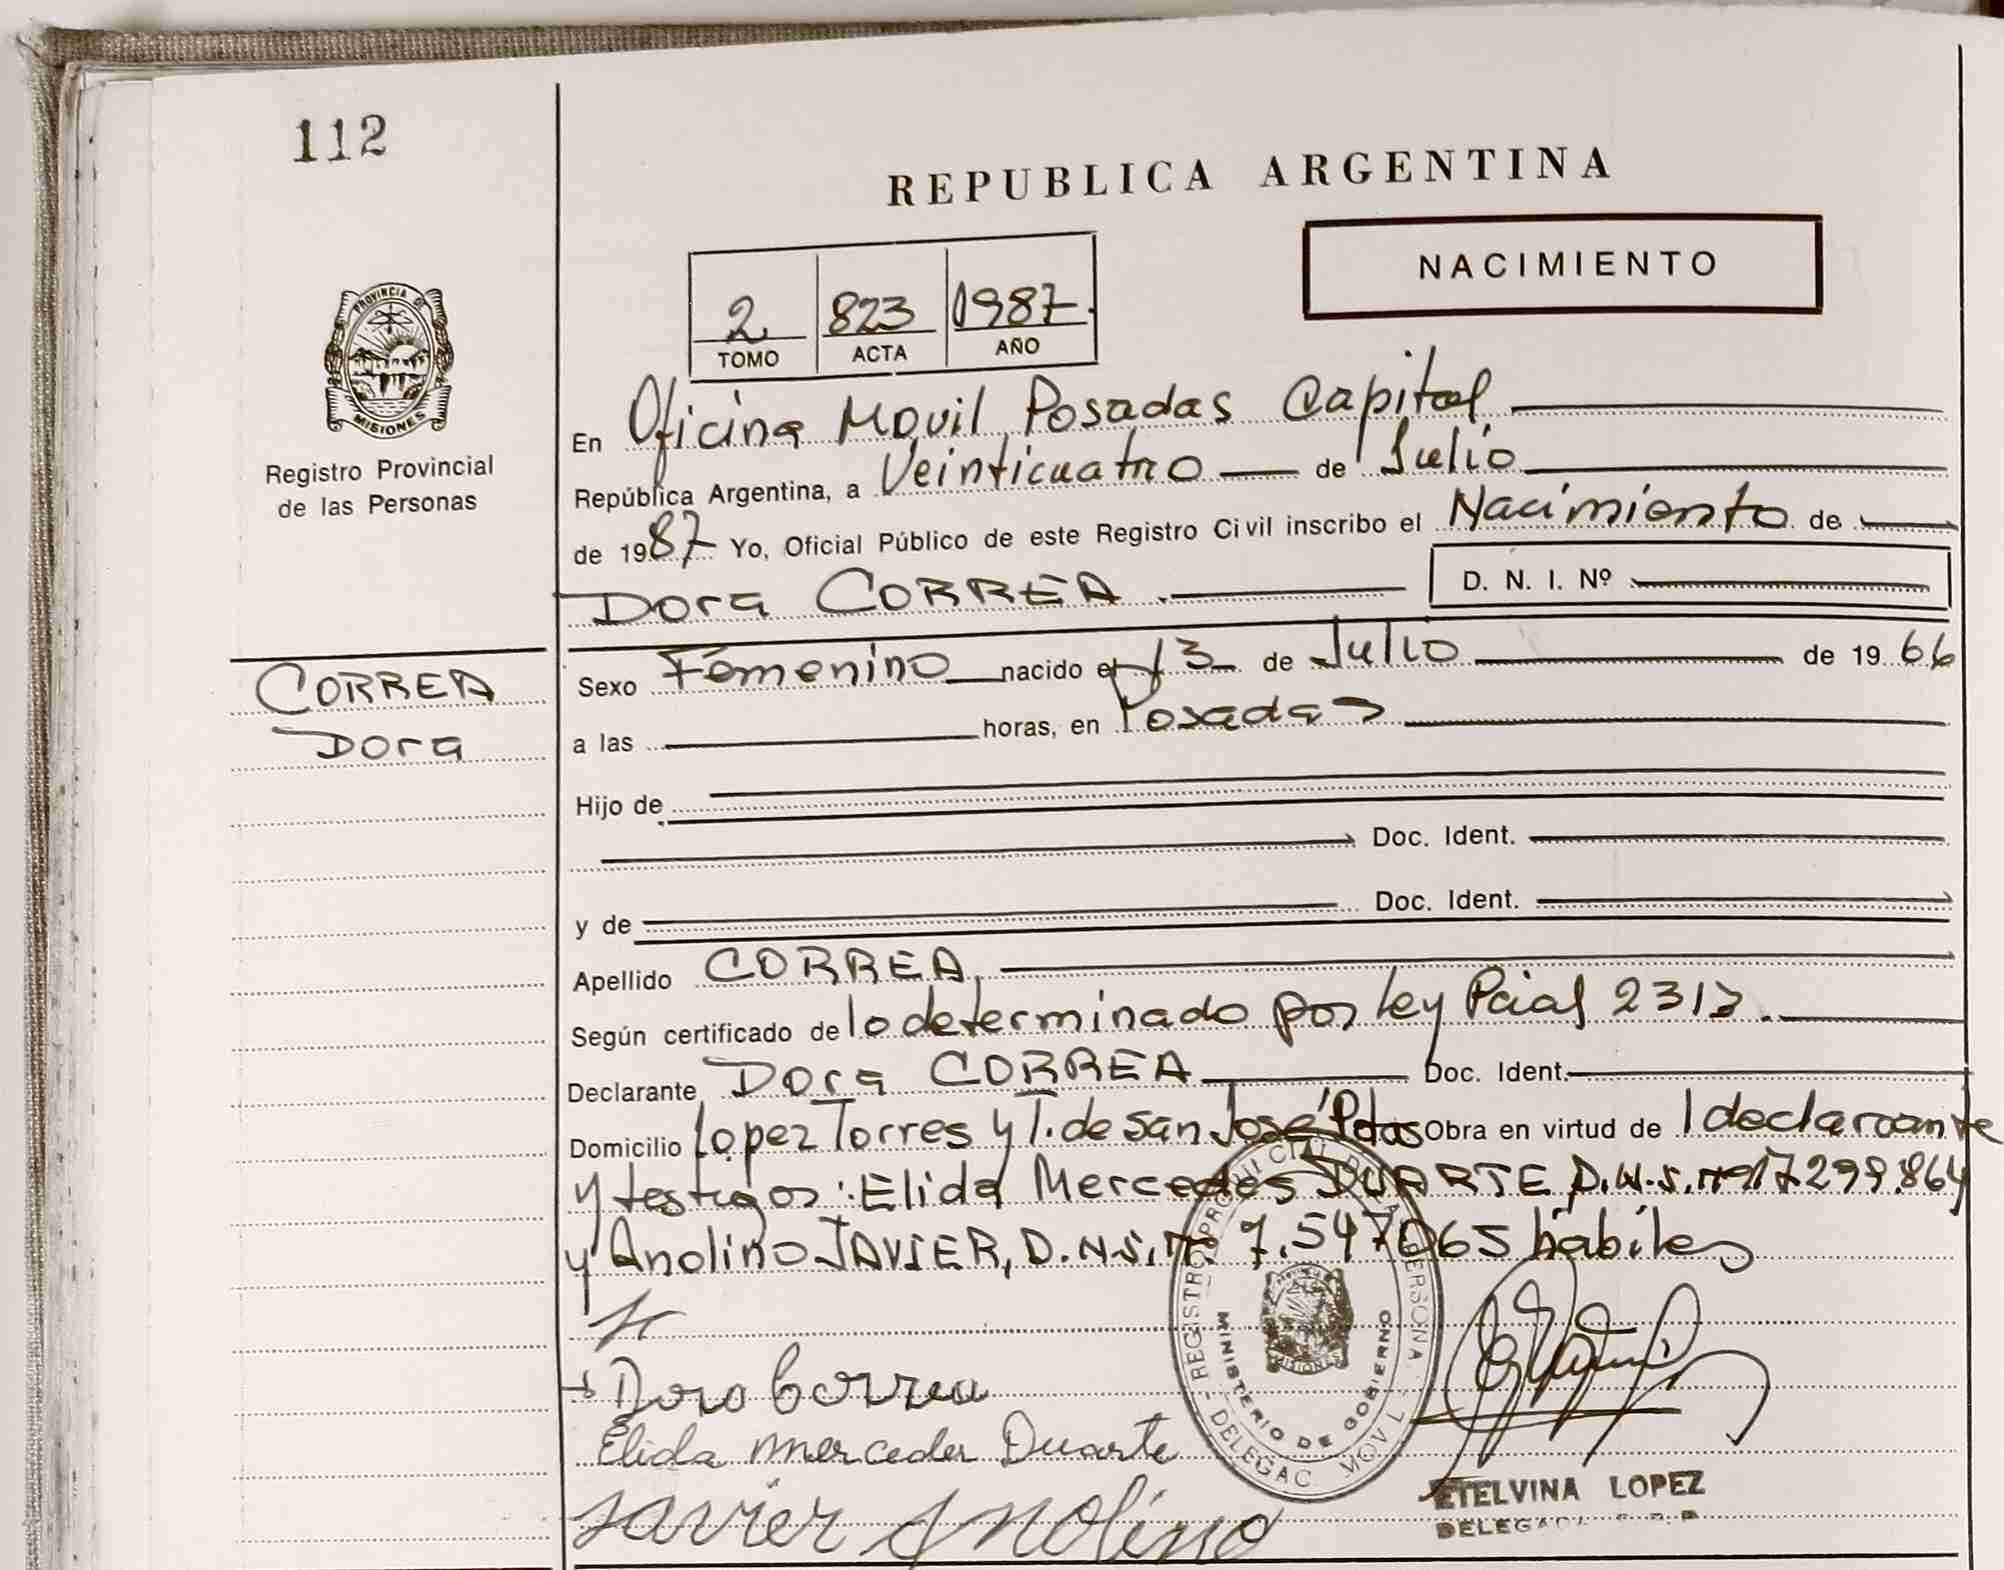 112
REPUBLICA ARGENTINA
NACIMIENTO
2 823 1987
TOMO ACTA AÑO
PROVINCIA DE
MISIONES
Registro Provincial
de las Personas
En Oficina Movil Posadas Capital
República Argentina, a Veinticuatro de Julio
de 1987 Yo, Oficial Público de este Registro Civil inscribo el Nacimiento de
Dora CORREA. D. N. I. Nº
CORREA
Dora
Sexo Femenino nacido el 13 de Julio de 1966
a las horas, en Posadas
Hijo de
Doc. Ident.
y de Doc. Ident.
Apellido CORREA
Según certificado de lo determinado por ley Pcial 2313.
Declarante Dora CORREA Doc. Ident.
Domicilio Lopez Torres y T. de San José Pdas Obra en virtud de l declaroante
y testigos: Elida Mercedes DUARTE D.N.I. nº 17299.864
y Anolino JAVIER, D.N.I. nº 7.547065 hábiles
Dora Correa
Elida Mercedes Duarte
Javier Anolino
REGISTRO PROVINCIAL DE LA PERSONA
MINISTERIO DE GOBIERNO
DELEGAC MOVL
MISIONES
ETELVINA LOPEZ